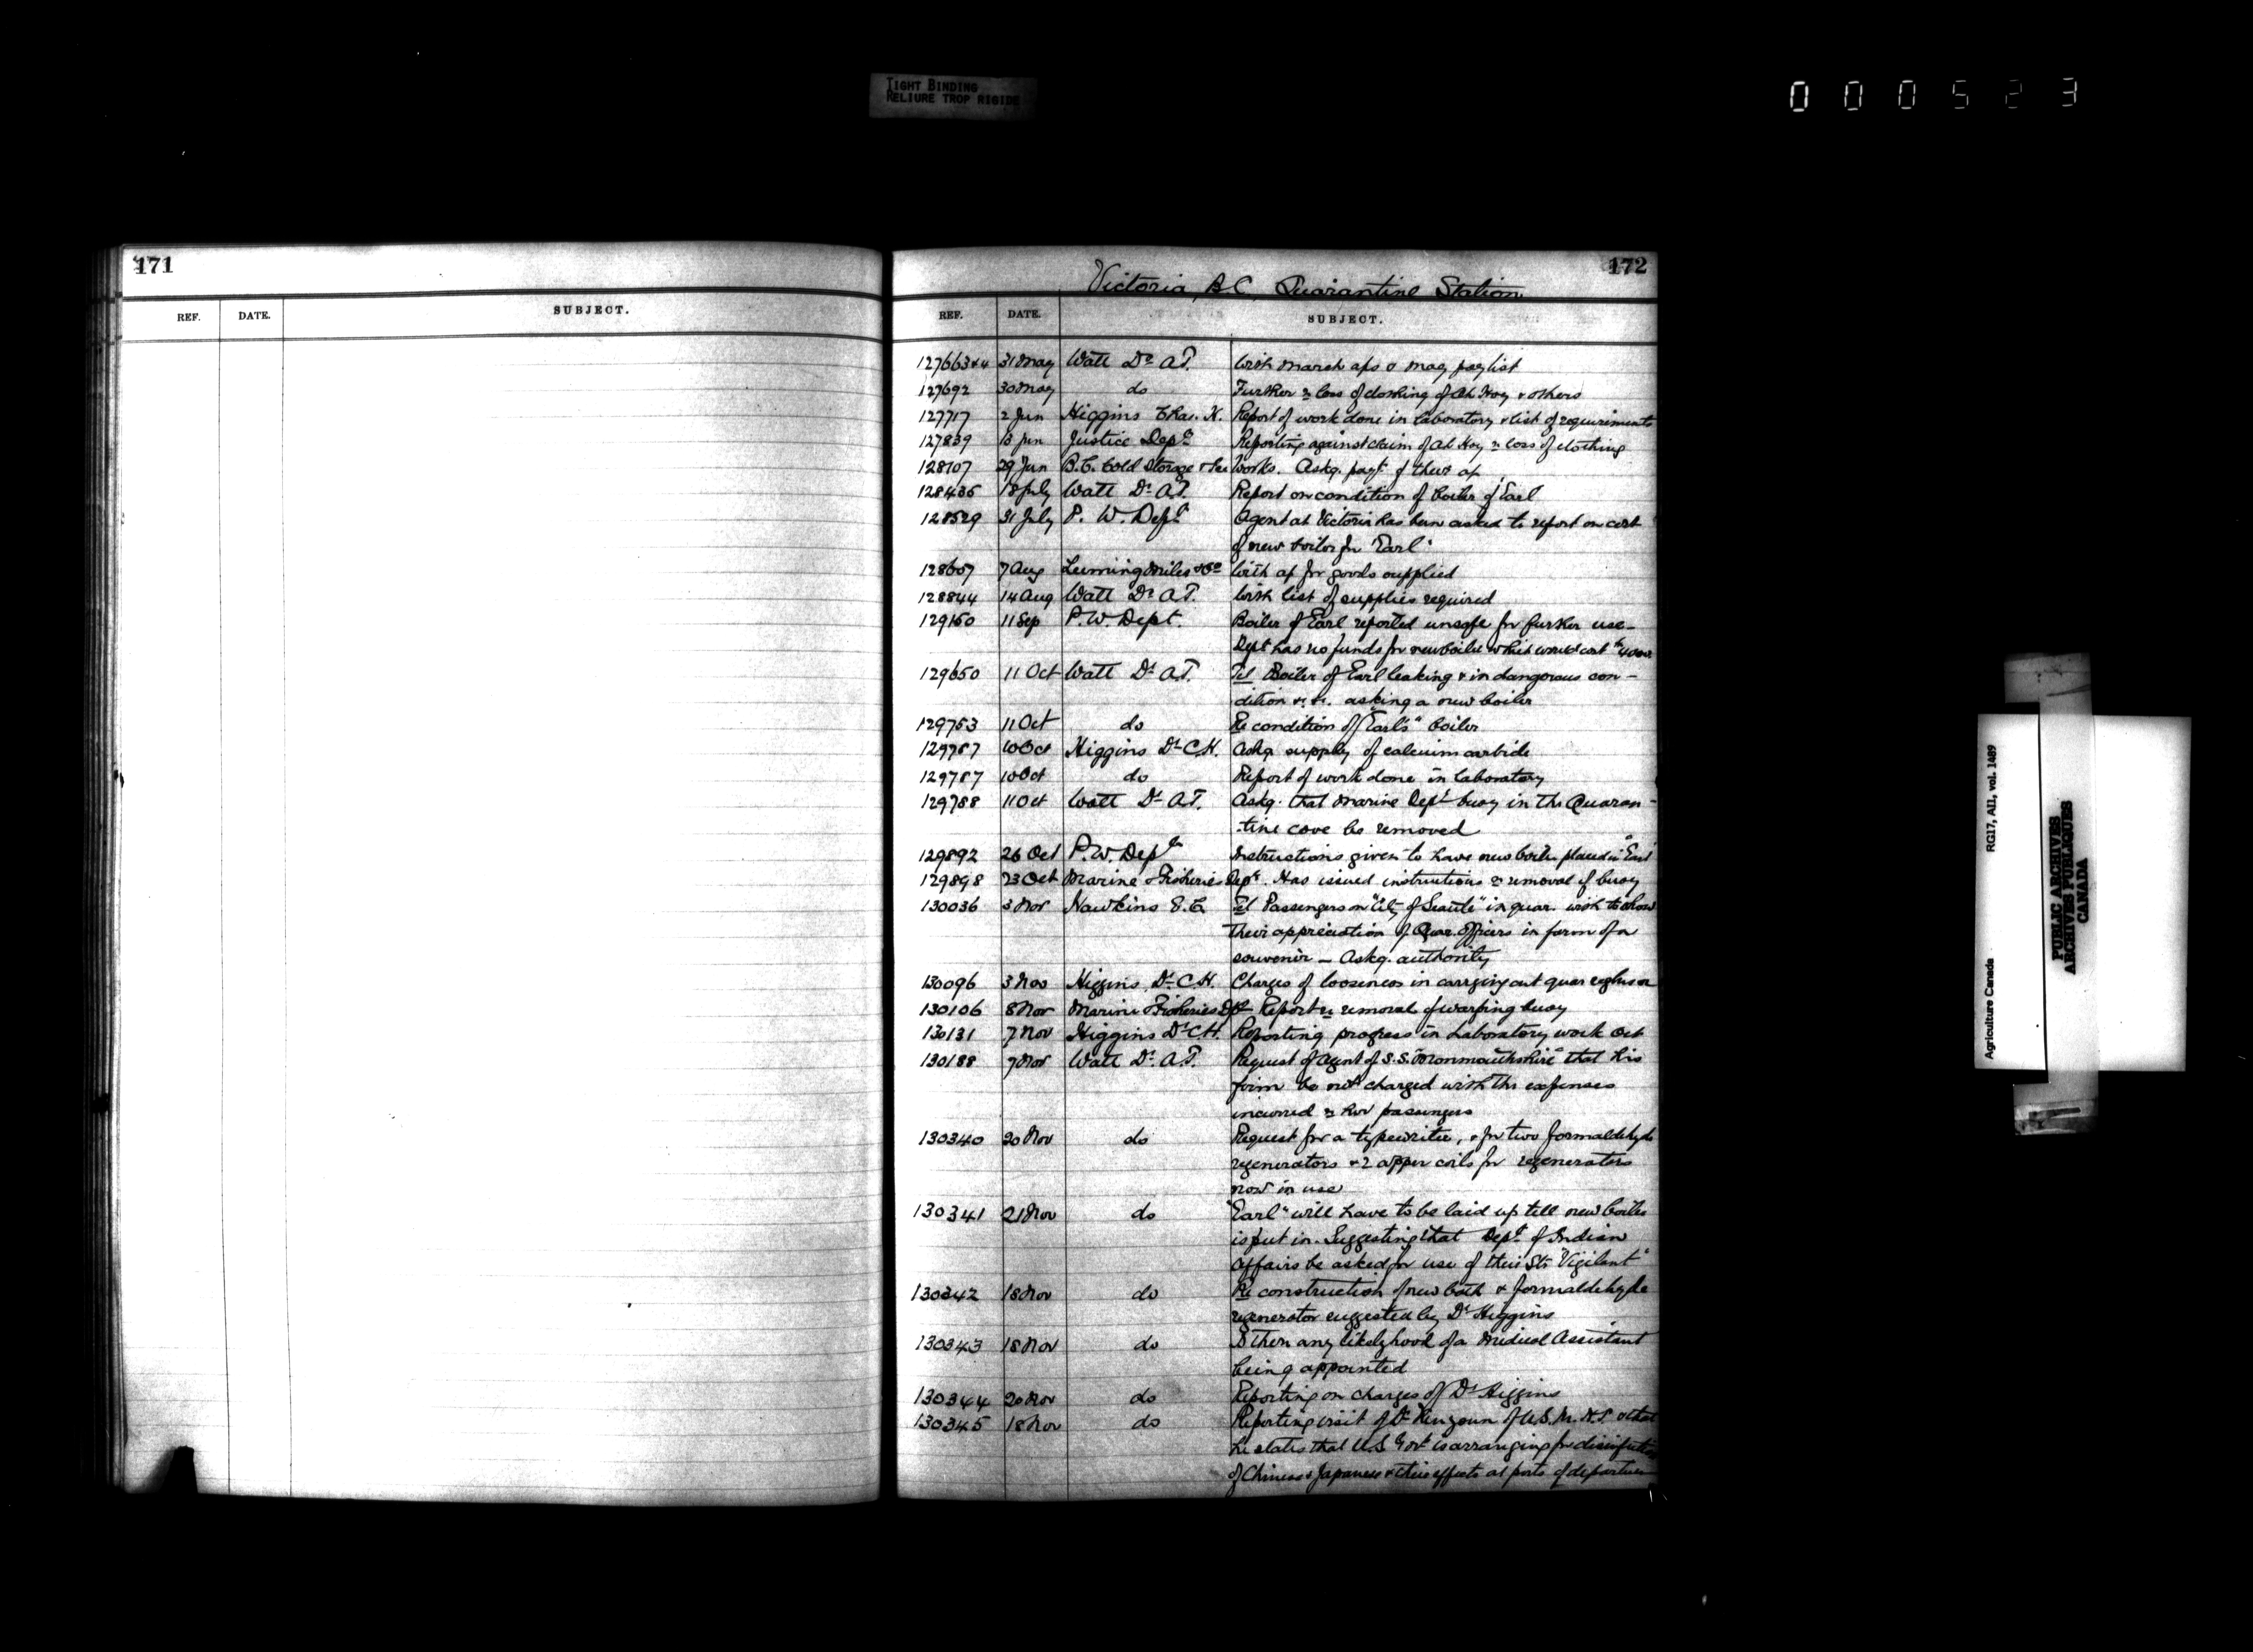 TIGHT BINDING
RELIURE TROP RIGIDE
000523
171
REF. DATE. SUBJECT.
172
Victoria, B.C., Quarantine Station
REF. DATE. SUBJECT.
127663+4 31 May Watt Dr A.T. With March aps & May paylist
127692 30 May do Further re loss of clothing of Ah Hoy & others
127717 2 Jun Higgins Chas. H. Report of work done in laboratory & list of requirements
127839 13 Jun Justice Dept Reporting against claim of Ah Hoy re loss of clothing
128107 29 Jun B.C. Cold Storage & Ice Works. Askg. payt of their a/c
128435 18 July Watt Dr A.T. Report on condition of boiler of Earl
128529 31 July P. W. Dept Agent at Victoria has been asked to report on cost
of new boiler for "Earl"
128607 7 Aug Leeming Miles & Co With a/c for goods supplied
128844 14 Aug Watt Dr A.T. With list of supplies required
129160 11 Sep P.W. Dept. Boiler of Earl reported unsafe for further use –
Dept has no funds for new boiler which would cost $4000
129650 11 Oct Watt Dr A.T. Tel Boiler of Earl leaking & in dangerous con –
dition &c. &c. asking a new boiler
129753 11 Oct do Re condition of "Earl's" boiler
129757 10 Oct Higgins Dr C.H. Askg supply of calcium carbide
129787 10 Oct do Report of work done in laboratory
129788 11 Oct Watt Dr A.T. Askg. that Marine Dept buoy in the Quaran –
tine cove be removed
129892 26 Oct P.W. Dept Instructions given to have new boiler placed in "Earl"
129898 23 Oct Marine & Fisheries Dept. Has issued instructions re removal of buoy
130036 3 Nov Hawkins E.C. Tel Passengers on "City of Seattle" in quar. wish to show
their appreciation of Quar. Officers in form of a
souvenir – Askg. authority
130096 3 Nov Higgins, Dr C.H. Charges of looseness in carrying out quar
130106 8 Nov Marine & Fisheries Dpt Report re removal of warping buoy
130131 7 Nov Higgins Dr C.H. Reporting progress in Laboratory work Oct
130188 7 Nov Watt Dr. A.T. Request of agent of S.S. "Monmouthshire" that his
firm be not charged with the expenses
incurred re her passengers
130340 20 Nov do Request for a typewriter, & for two formaldehyde
regenerators & 2 copper coils for regenerators
now in use
130341 21 Nov do "Earl" will have to be laid up till new boiler
is put in. Suggesting that Dept of Indian
Affairs be asked for use of their Str "Vigilant"
130342 18 Nov do Re construction of new bath & formaldehyde
regenerator suggested by Dr Higgins
130343 18 Nov do Is there any likelyhood of a Medical Assistant
being appointed
130344 20 Nov do Reporting on charges of Dr Higgins
130345 18 Nov do Reporting visit of Dr Kinyoun of U.S.M.H.S. & that
he states that U.S Govt is arranging for disinfection
of Chinese & Japanese & their effects at ports of departure
Agriculture Canada RG17, AII, vol. 1489
PUBLIC ARCHIVES
ARCHIVES PUBLIQUES
CANADA